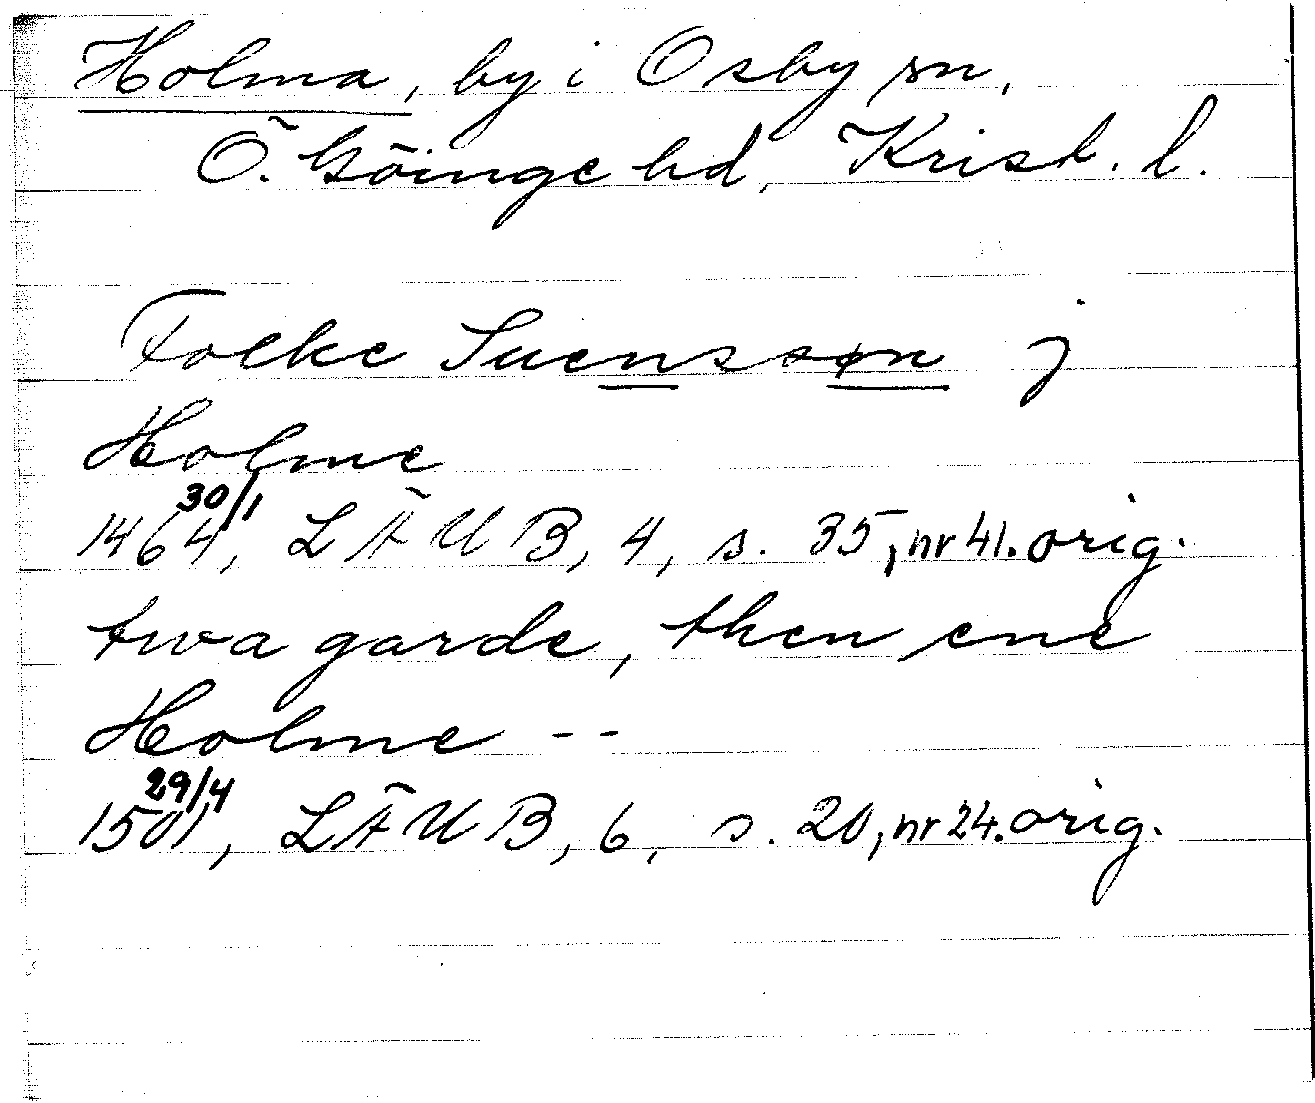 Holma, by i Osby sn,
Ö. Göinge hd, Krist. l.
Folke Suenssøn j
Holme
1464 30/1, LÄUB, 4, s. 35, nr 41. orig.
twa garde, then ene
Holme --
1501 29/4, LÄUB, 6, s. 20, nr 24. orig.